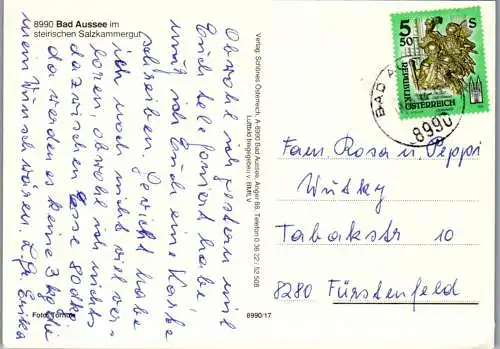 8990 Bad Aussee im
steirischen Salzkammergut
Obwohl ich gestern mit
Euch telefoniert habe
muß ich Euch eine Karte
schreiben. Gewicht habe
ich noch nicht viel ver-
loren, obwohl ich nichts
dazwischen esse 80dkg
da werden es keine 3kg die
mein Wunsch wären. Erika
Verlag: Schönes Österreich, A-8990 Bad Aussee, Anger 88, Telefon 0 36 22 / 52 508
Luftbild freigegeben v. BMfLV
Foto:
8990/17
5 50 S
REPUBLIK
ÖSTERREICH
BAD A
8990
Fam. Rosa u. Peppi
Wutky
Tabakstr 10
8280 Fürstenfeld